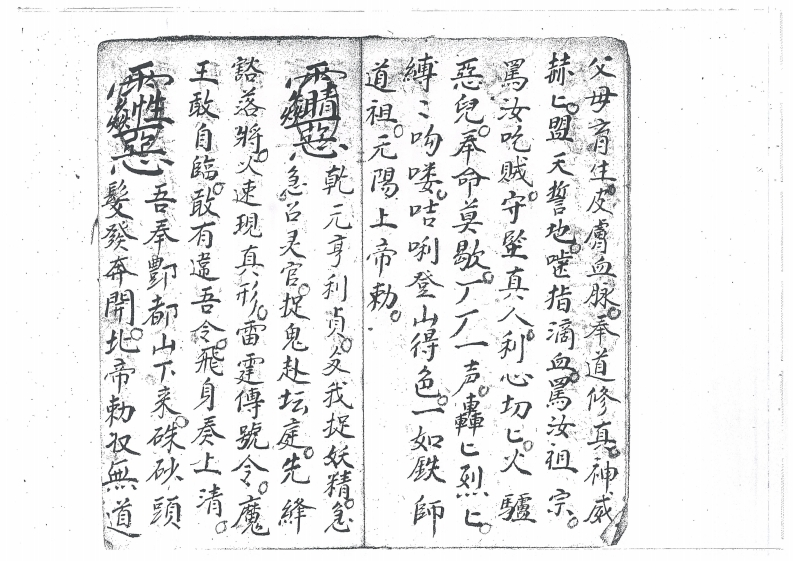 父母育生皮膚血脉。奉道修真。神威
赫匕。盟天誓地。嚙指滴血。罵汝祖宗。
罵汝吃賊。守坚真人。利心切匕。火驢
惡兒。奉命莫歇。丆丆一声。轟匕烈匕。
縛〻吻喽。咭唎登山得色。一如鉄師
道祖。元陽上帝勅。
乾元亨利貞。交我捉妖精。急
急召灵官。捉鬼赴坛庭。先鋒
豁落將。火速現真形。雷霆傳號令。魔
王敢自臨。敢有違吾令。飛身奏上清。
吾奉酆都山下来。硃砂頭
髮發奔開。北帝勅奴無道